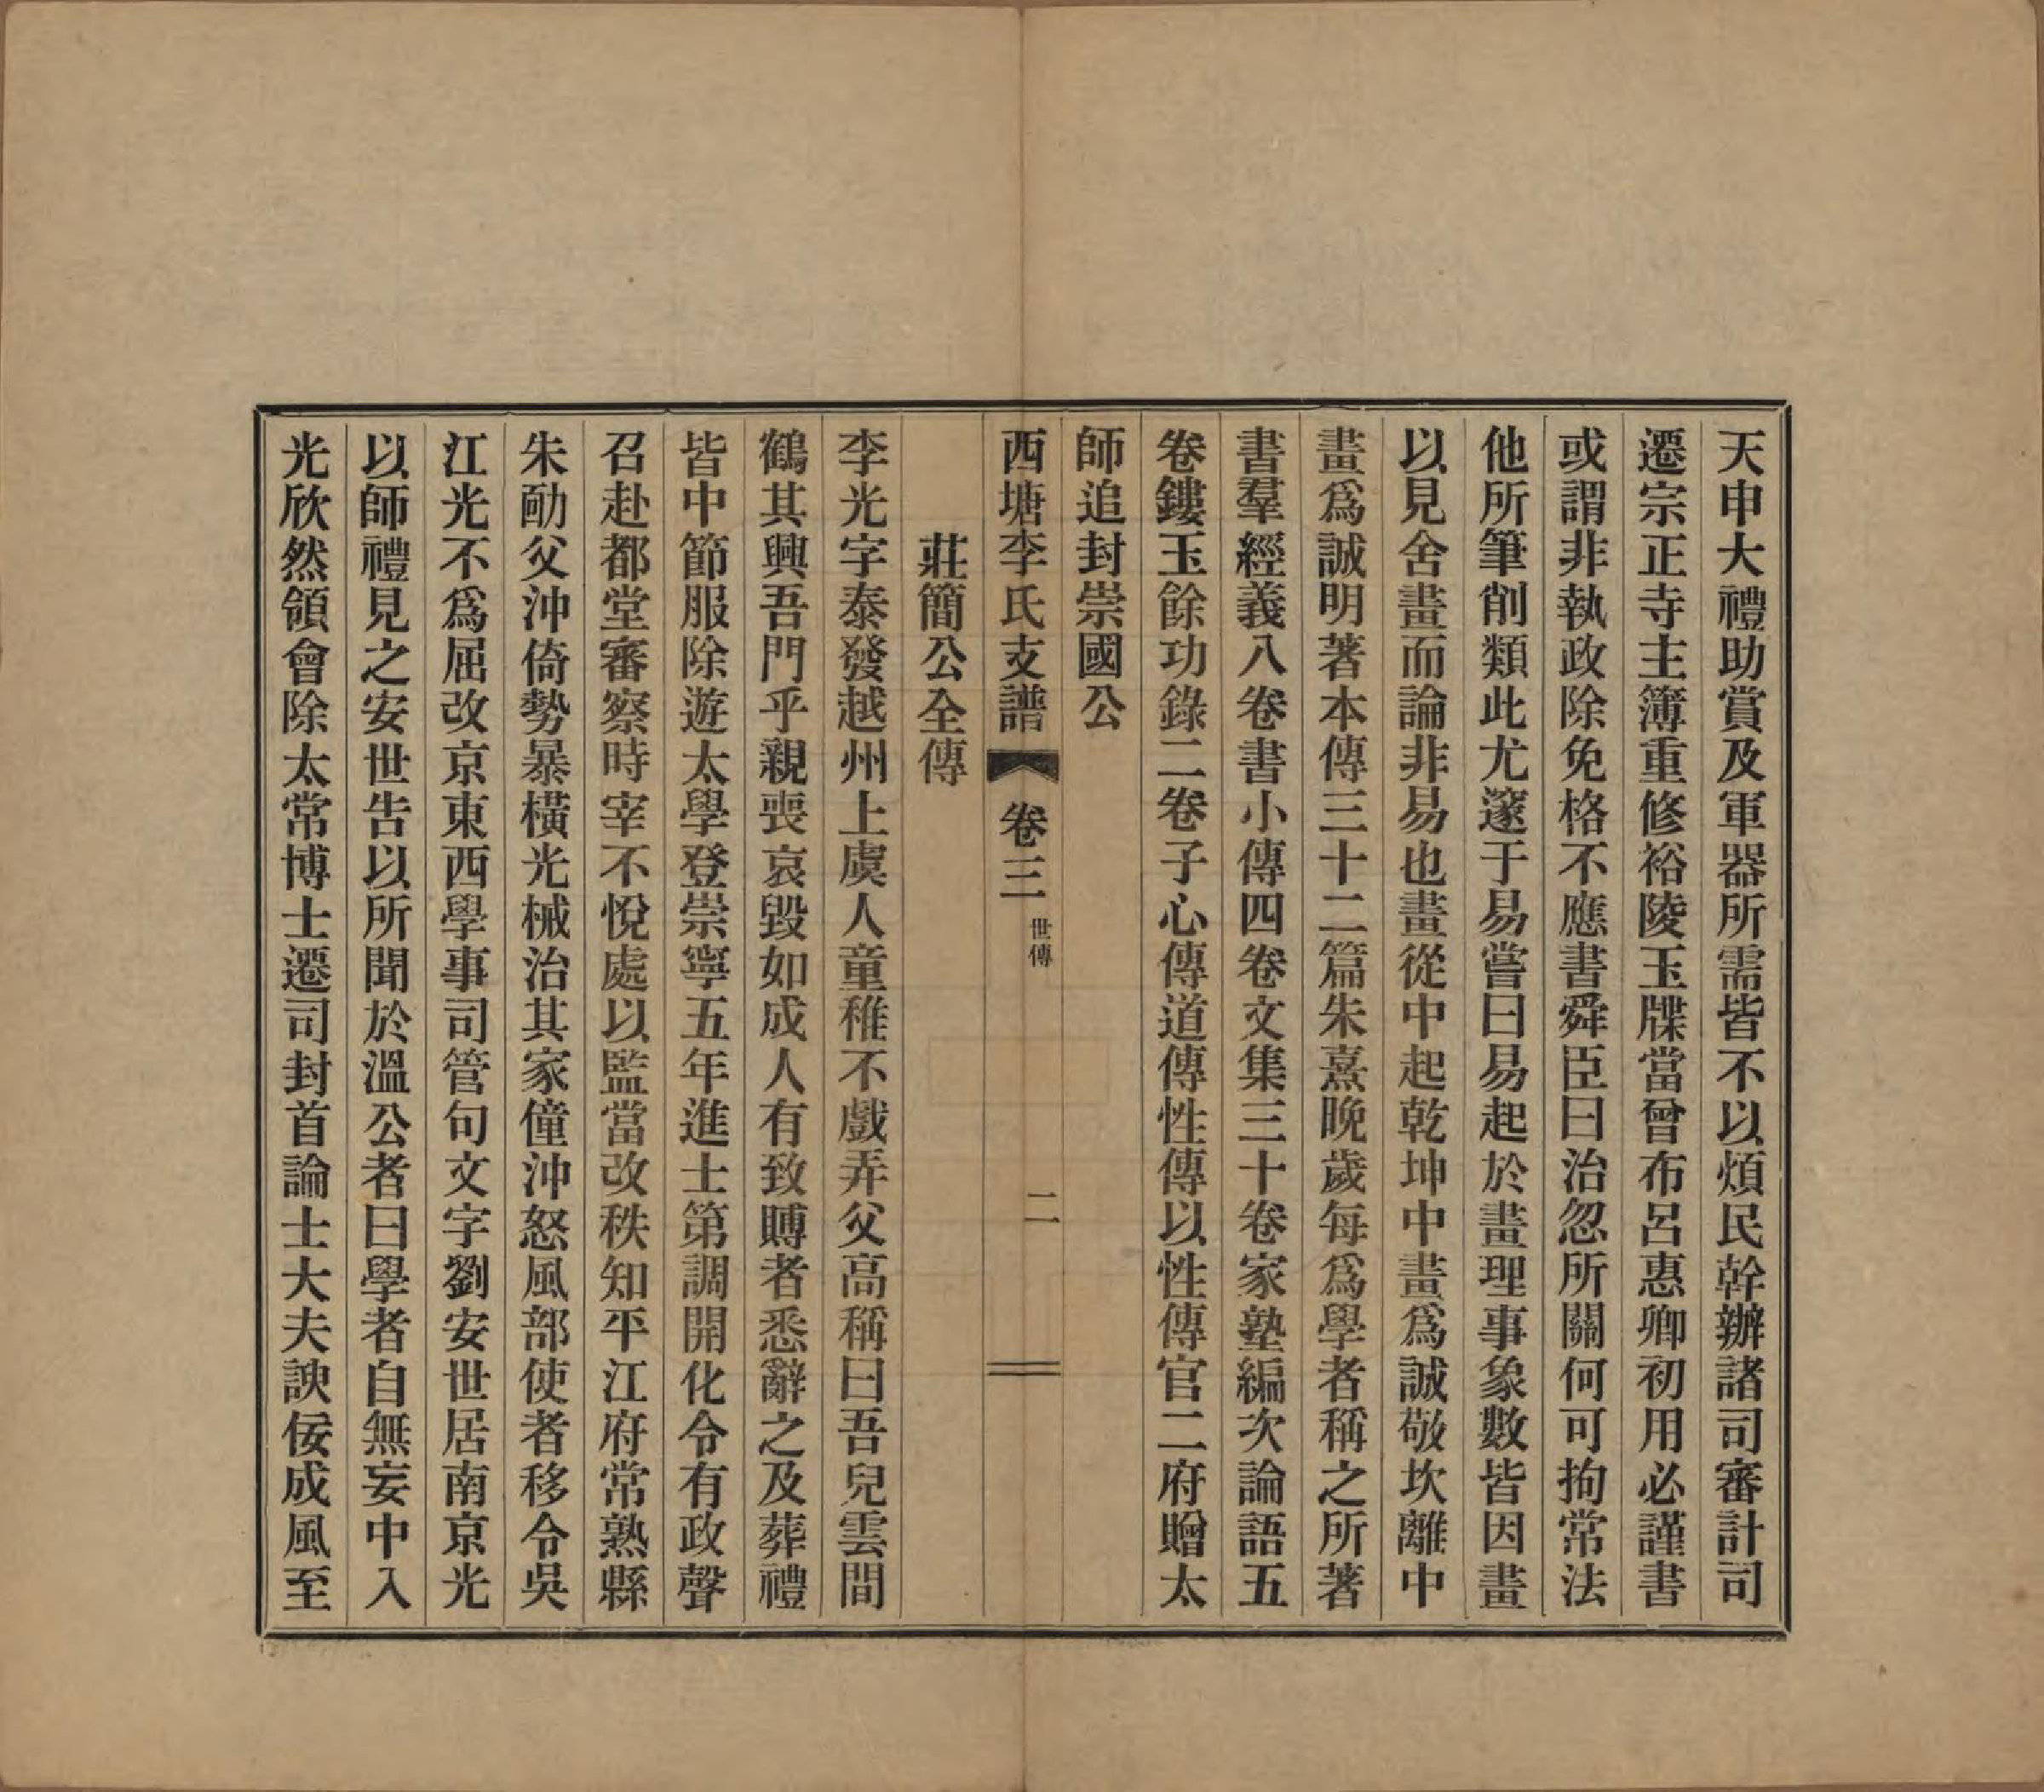 天申大禮助賞及軍器所需皆不以煩民幹辦諸司審計司
遷宗正寺主簿重修裕陵玉牒當曾布呂惠卿初用必謹書
或謂非執政除免格不應書舜臣曰治忽所關何可拘常法
他所筆削類此尤邃于易嘗曰易起於畫理事象數皆因畫
以見舍畫而論非易也畫從中起乾坤中畫爲誠敬坎離中
畫爲誠明著本傳三十二篇朱熹晚歲每爲學者稱之所著
書羣經義八卷書小傳四卷文集三十卷家塾編次論語五
卷鏤玉餘功錄二卷子心傳道傳性傳以性傳官二府贈太
師追封崇國公
西塘李氏支譜 卷三 世傳 二
莊簡公全傳
李光字泰發越州上虞人童稚不戲弄父高稱曰吾兒雲間
鶴其興吾門乎親喪哀毀如成人有致賻者悉辭之及葬禮
皆中節服除遊太學登崇寧五年進士第調開化令有政聲
召赴都堂審察時宰不悅處以監當改秩知平江府常熟縣
朱勔父沖倚勢暴橫光械治其家僮沖怒風部使者移令吳
江光不爲屈改京東西學事司管句文字劉安世居南京光
以師禮見之安世告以所聞於溫公者曰學者自無妄中入
光欣然領會除太常博士遷司封首論士大夫諛佞成風至